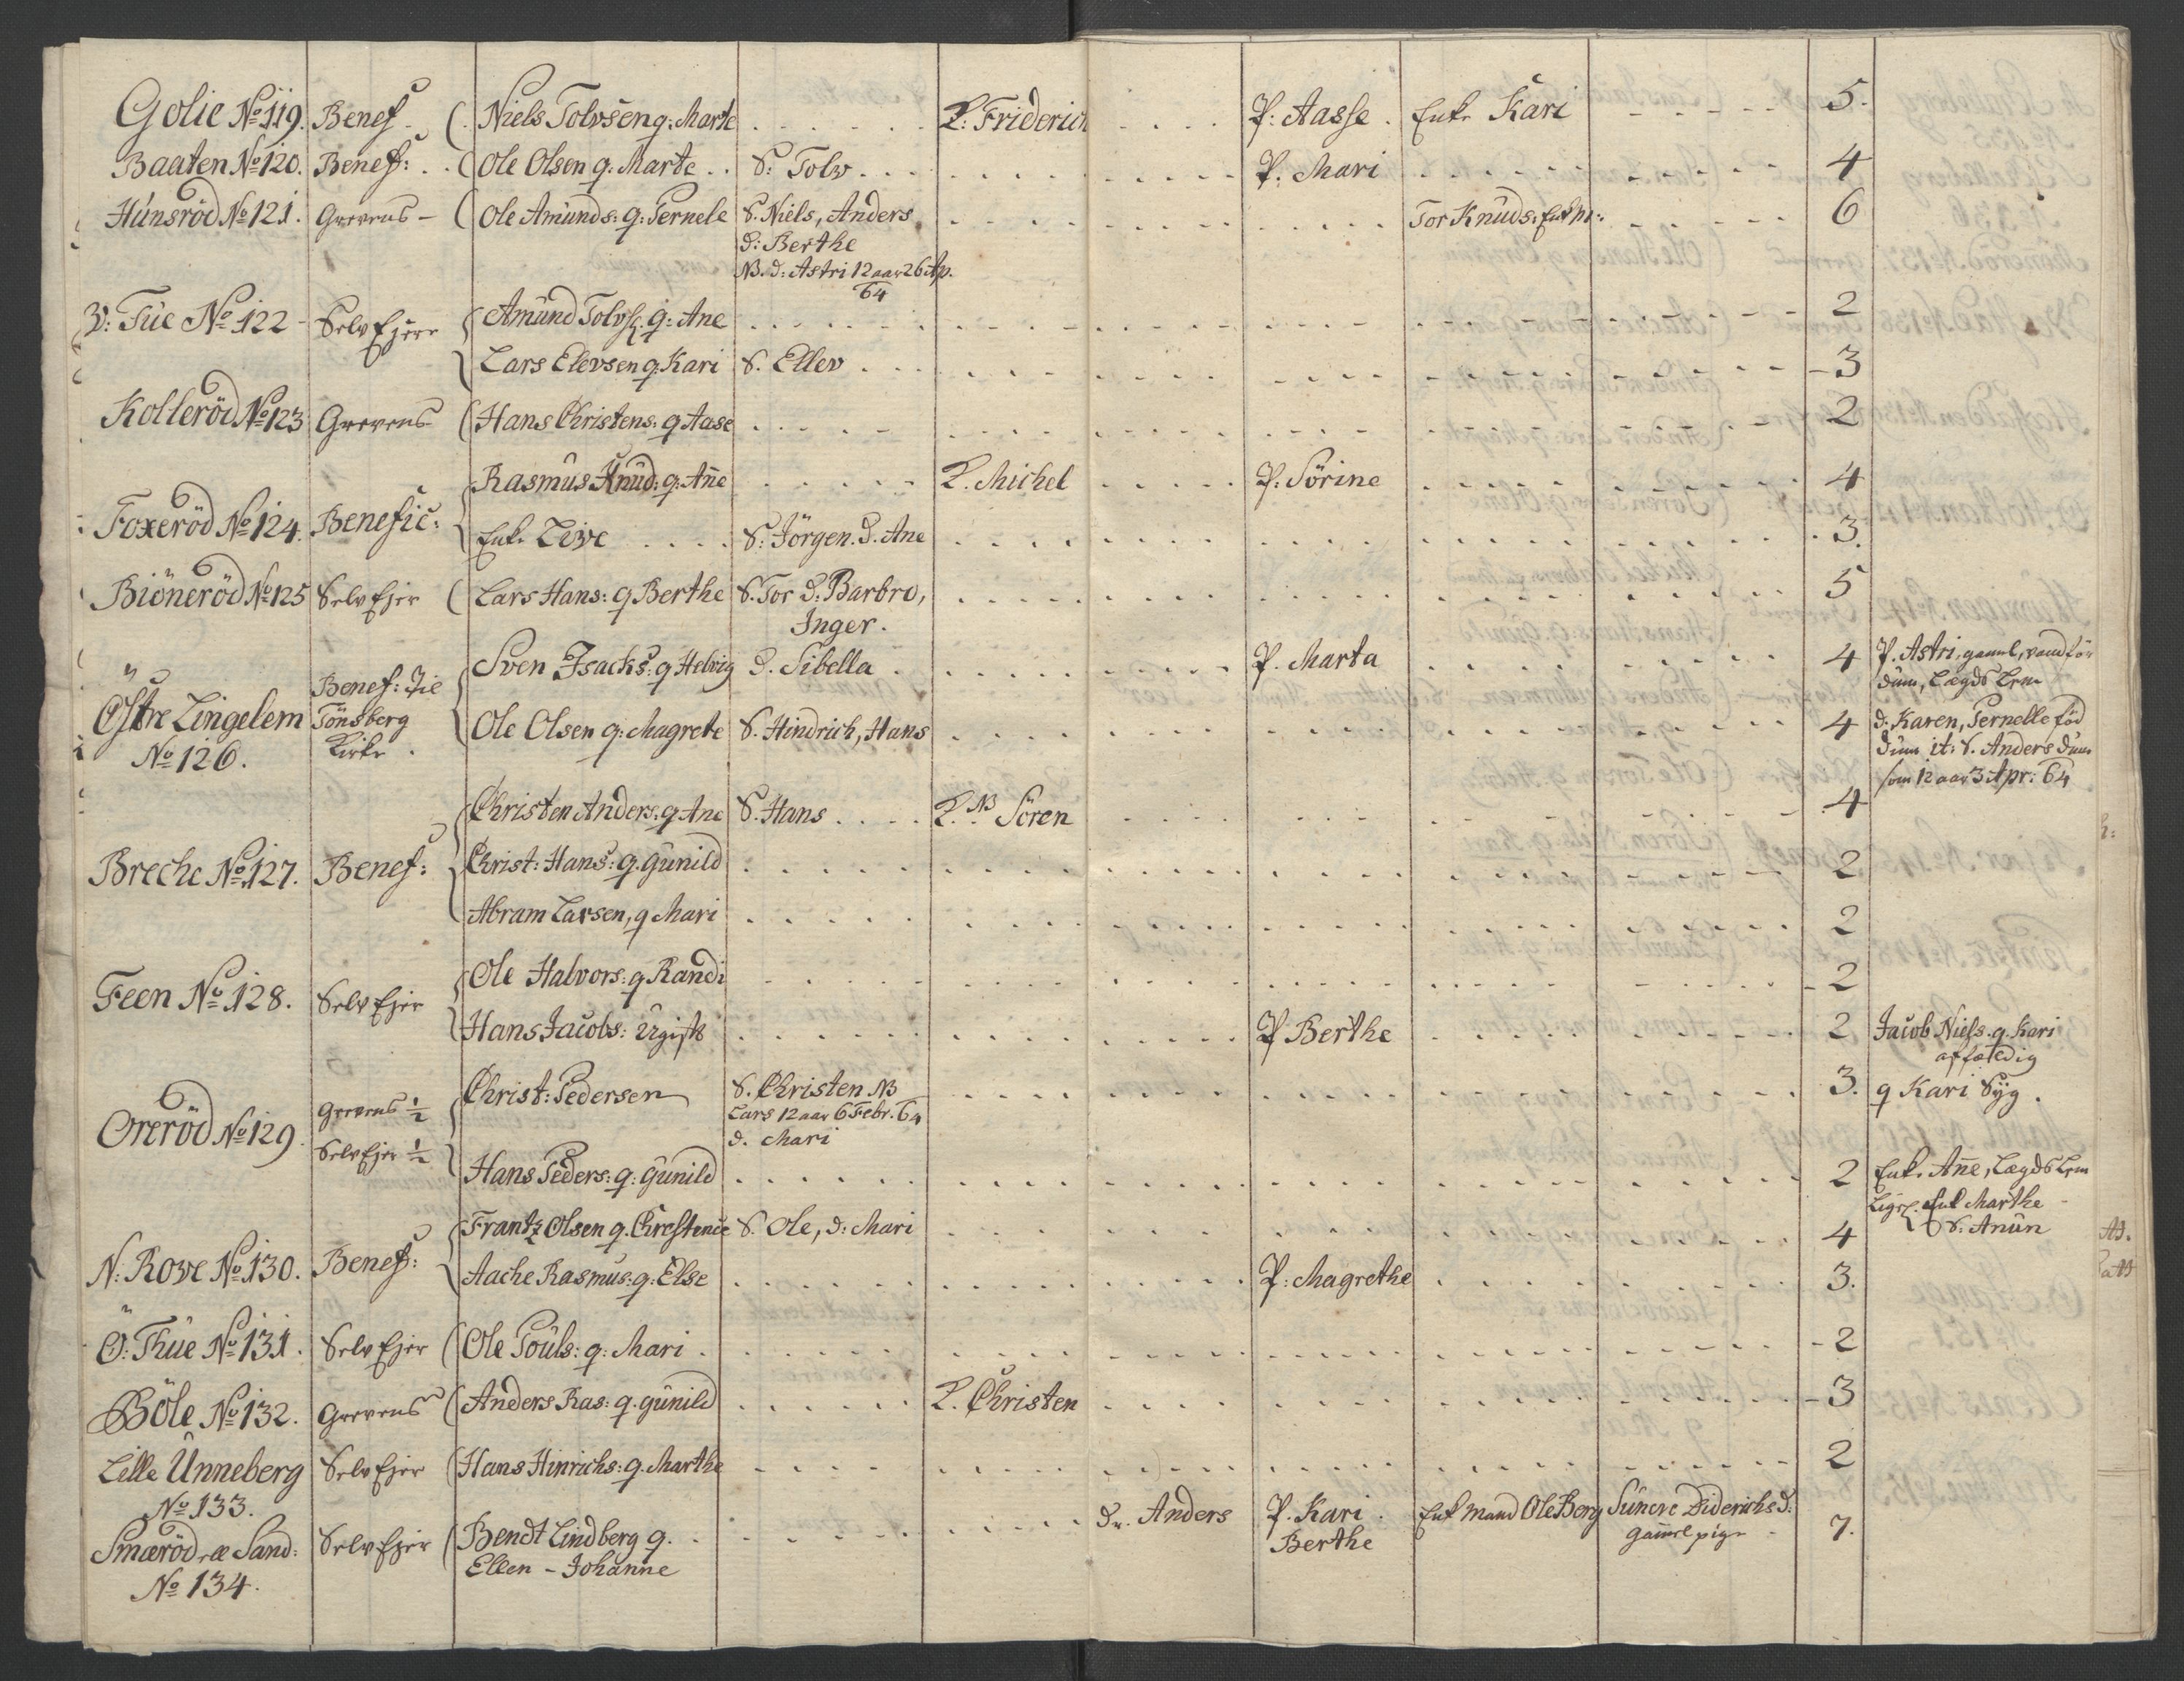 Golie No 119. Benef. Niels Tolvsen g: Marte K: Friderich P: Aasse. Enke Kari 5.
Baaten No 120. Benef: Ole Olsen g: Marte S: Tolv P: Mari 4
Hunsröd No 121. Grevens Ole Amunds: g: Pernele S. Niels, Anders Tor Knuds: 6
d: Berthe
NB. d: Astri 12 aar 26 Ap.
64
V: Tüe No 122 Selv Ejere Amund Tolvs. g: Ane 2
Lars Elevsen g: Kari S. Ellev 3
Kolleröd No 123 Grevens Hans Christens: g Aase 2
Rasmus Knud: g: Añe K. Michel P. Sörine 4
Foxeröd No 124. Benefic: Enke Live S: Jörgen. d. Ane 3.
Biöneröd No 125 Selv Ejer Lars Hans: g Berthe S. Tor d: Barbro, 5
Inger.
Sven Isachs: g Helvig d. Sibella P. Marta 4 P. Astri, gamel, vanför
Benef: til dum, Lægds Lem
Östre Lingelem Tönsberg Ole Olsen g: Magrete S. Hindrich, Hans 4 d: Karen, Pernelle föd
No 126. Kirke. dum it: S. Anders dum
som 12 aar 3 Apr: 64
Christen Anders: g Ane S. Hans K. NB Sören 4
Breche No 127. Benef: Christ: Hans: g. Gunild 2
Abram Larsen, g Mari 2
Feen No 128. Selv Ejer Ole Halvors: g Randi 2
Hans Jacobs: Ugift P Berthe 2 Jacob Niels. g. Kari
affældig
Oreröd No 129. Grevens 1/2 Christ: Pedersen S. Christen NB 3. g Kari Syg.
Lars 12 aar 6 Febr. 64
Selv Ejer 1/2 d. Mari
Hans Peders: g: Gunild 2 Enke Añe, Lægds Lem
Enk Marthe
Frantz Olsen g. Chrestence S. Ole, d: Mari 4 S: Anun
N: Rove No 130. Benef: Aache Rasmus: g: Else P: Magrethe 3.
Ö: Thüe No 131. Selv Ejer Ole Pouls: g: Mari 2
Böle No 132. Grevens Anders Ras: g. Gunild K. Christen 3
Lille Unneberg Selv Ejer Hans Hinrichs: g. Marthe 2
No 133.
Smæröd æ Sand: Selv Ejer Bendt Lindberg g. dr. Anders P. Kari. Enk mand Ole Berg Suneve Diderichs d: 7.
Ellen - Johanne Berthe gamel pige
No 134.